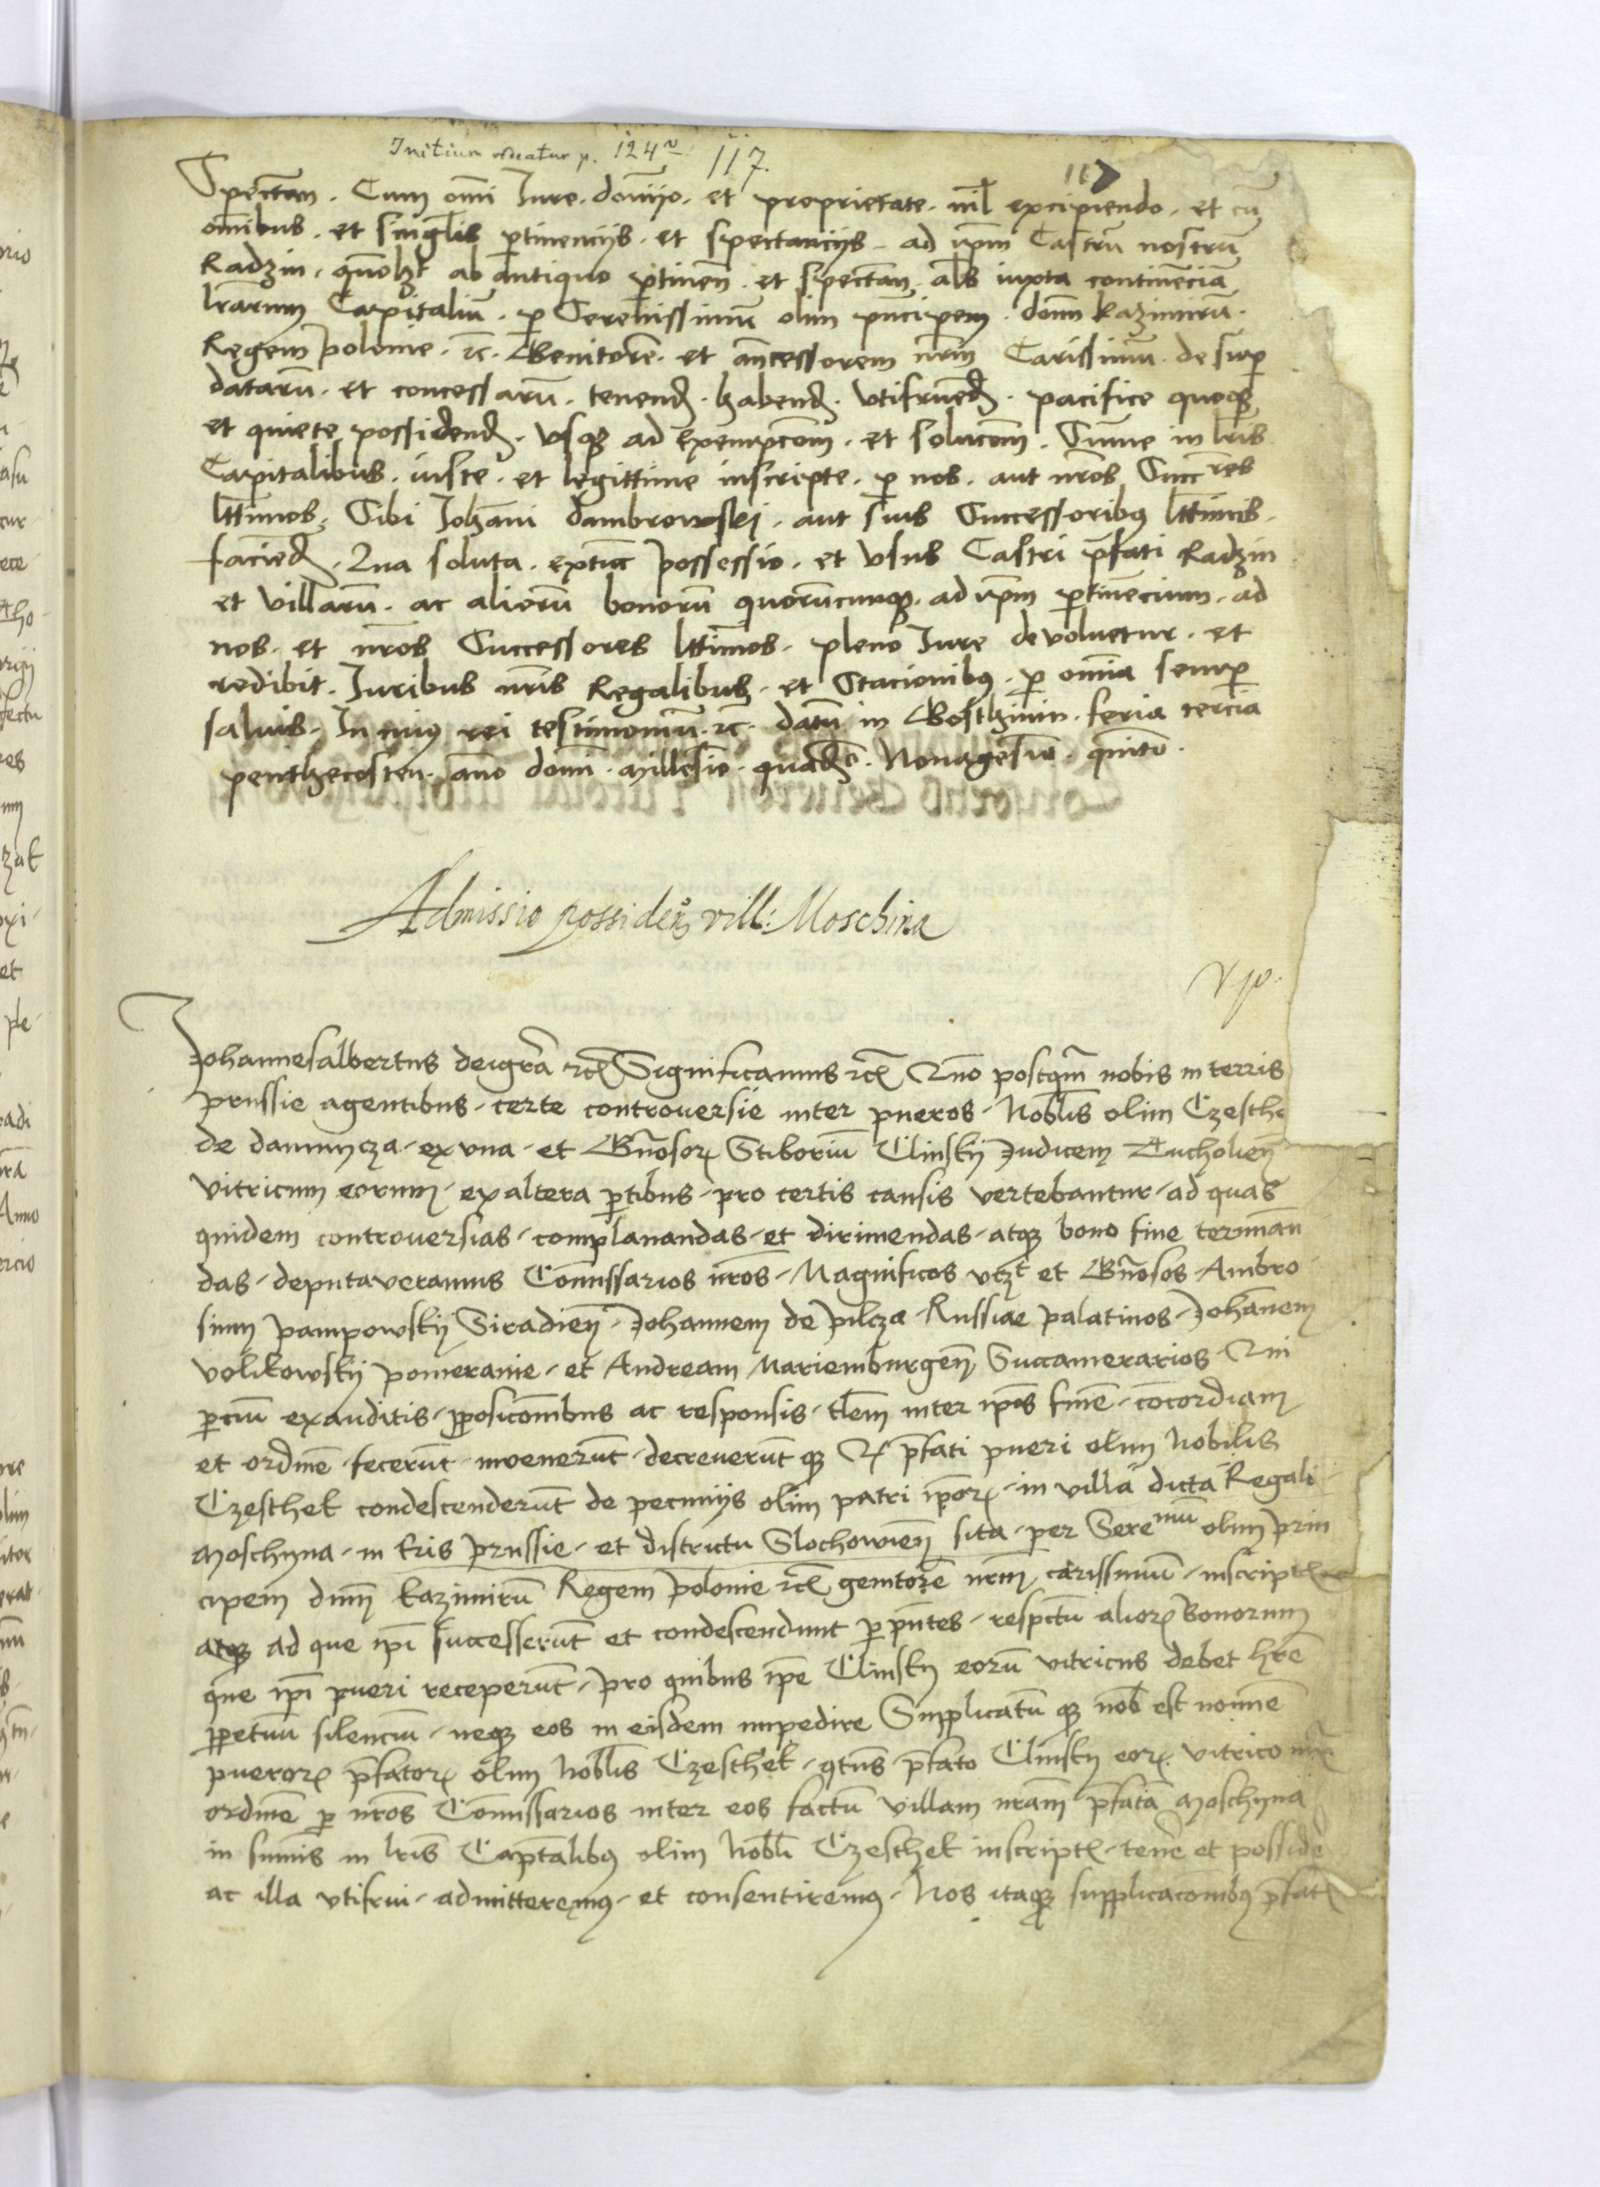 Initium videatur p. 124v 117.
117
Spectan̄. Cum om̄i Iure. domījo. et proprietate. nīl excipiendo. et cū
om̄ibus. et singl̄is p̄tinencijs. et spectancijs. ad ip̄m Castrū nostrū
Radzin. quōlꝫt ab antiquo p̄tinen̄. et spectan̄. al̄s iuxta continēciā
lr̄arum Capitaliū. p Serenissimū olim pn̄cipem. domī kazimirū.
Regem polonie. ⁊c. Genitorē. et an̄cessorem nr̄m Carissimū. desup
datarū. et concessarū. tenend̄. habend̄. vtifruēd̄. pacifice quoqꝫ
et quiete possidend̄. vsqꝫ ad exempcōm. et solucōm. Sūme in lr̄is
Capitalibus. iuste. et legittime inscripte. p nos. aut nr̄os Succres
lttīmos. Sibi Joh̄ani dambrowski. aut suis Successoribꝰ lttīmis.
faciēd̄. Qua soluta. extūc possessio. et vsus Castri p̄fati Radzin
et villarū. ac aliorū bonorū quorūcunqꝫ. ad ip̄m p̄tinēcium. ad
nos. et nr̄os Successores lttīmos. pleno Iure devoluetur. et
redibit. Iuribus nr̄is Regalibus. et Stacionibꝰ. p om̄ia semp
saluis. In cuiꝰ rei testimoniū. ⁊c. datū in Gosthinin. feria tercia
penthecosten. an̄o domī. millesīo. quadꝫo. Nonagesīo. qnīto.
Admissio possiden̄ vill: Moschina
Johannesalbertus deigrā ⁊cꝫ Significamus ⁊cꝫ Quō postqm̄ nobis in terris
prussie agentibus. certe controuersie inter pueros. Nobl̄is olim Czesth
de damnicza. ex vna. et Gn̄osoꝝ Stiboriū Clinskij Judicem Tucholien̄
vitricum eorum. exaltera p̄tibus. pro certis causis vertebantur. ad quas
quidem controuersias. complanandas. et dirimendas. atqꝫ bono fine termīan
das. deputaveramus Com̄issarios nr̄os. Magnificos vcꝫt et Gn̄osos. Ambro
sium pampowskij Siradien̄. Johannem de pilcza. Russiae palatinos. Joh̄anem
volkowskij pomeranie. et Andream Mariemburgen̄ Succamerarios. Qui
p̄ciū exauditis. pposicōnibus ac responsis. tl̄em inter ip̄os finē. cōcordiam
et ordinē. fecerūt. invenerūt. decreuerūt qꝫ Qꝫ p̄fati pueri olim Nobilis
Czesthek condescenderūt de pecunijs olim patri ip̄oꝝ. in villa dicta Regali
Moschyna. in tr̄is prussie. et districtu Slochowien̄ sita. per Serenmū olim prin
cipem dnm̄ kazimirū Regem polonie ⁊cꝫ genitorē nr̄m carissimū. inscriptꝫ
atqꝫ ad que ip̄i successerūt et condescendunt p pn̄tes. respctū alioꝝ Bonorum
que ip̄i pueri receperūt. pro quibus ip̄e Clinskij eorū vitricus debet hr̄e
ppetuū silenciū. neqꝫ eos in eisdem impedire Supplicatū qꝫ nob̄ est nomīe
pueroꝝ p̄fatoꝝ olim Nobl̄is Czesthek. qtūs. p̄fato Clinskij eoꝝ vitrico
ordinē p nr̄os Com̄issarios inter eos factū villam nr̄am p̄fatā Moschyna
in sum̄is in lr̄is Capitalibꝰ olim Nobl̄i Czesthek inscriptꝫ. tenēr et possidēr
ac illa vtifrui. admitteremꝰ. et consentiremꝰ. Nos itaqꝫ supplicacōnibꝰ p̄fatꝫ